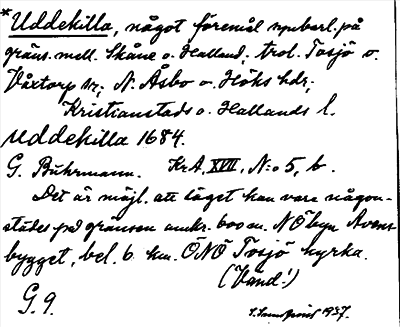 *Uddekilla, något föremål uppbarl. på
gräns. mell. Skåne o. Halland; trol. Tosjö o.
Våxtorp sr; N. Åsbo o. Höks hdr;
Kristianstads o. Hallands l.
Uddekilla 1684.
G. Buhrmann. KrA, XVII, N:o 5, b.
Det är möjl. att läget kan vara någon-
städes på gränsen omkr. 600 m. NÖ byn Avens
bygget, bel. 6 km. ÖNÖ Tosjö kyrka.
(Vänd!)
G. 9. 1937.